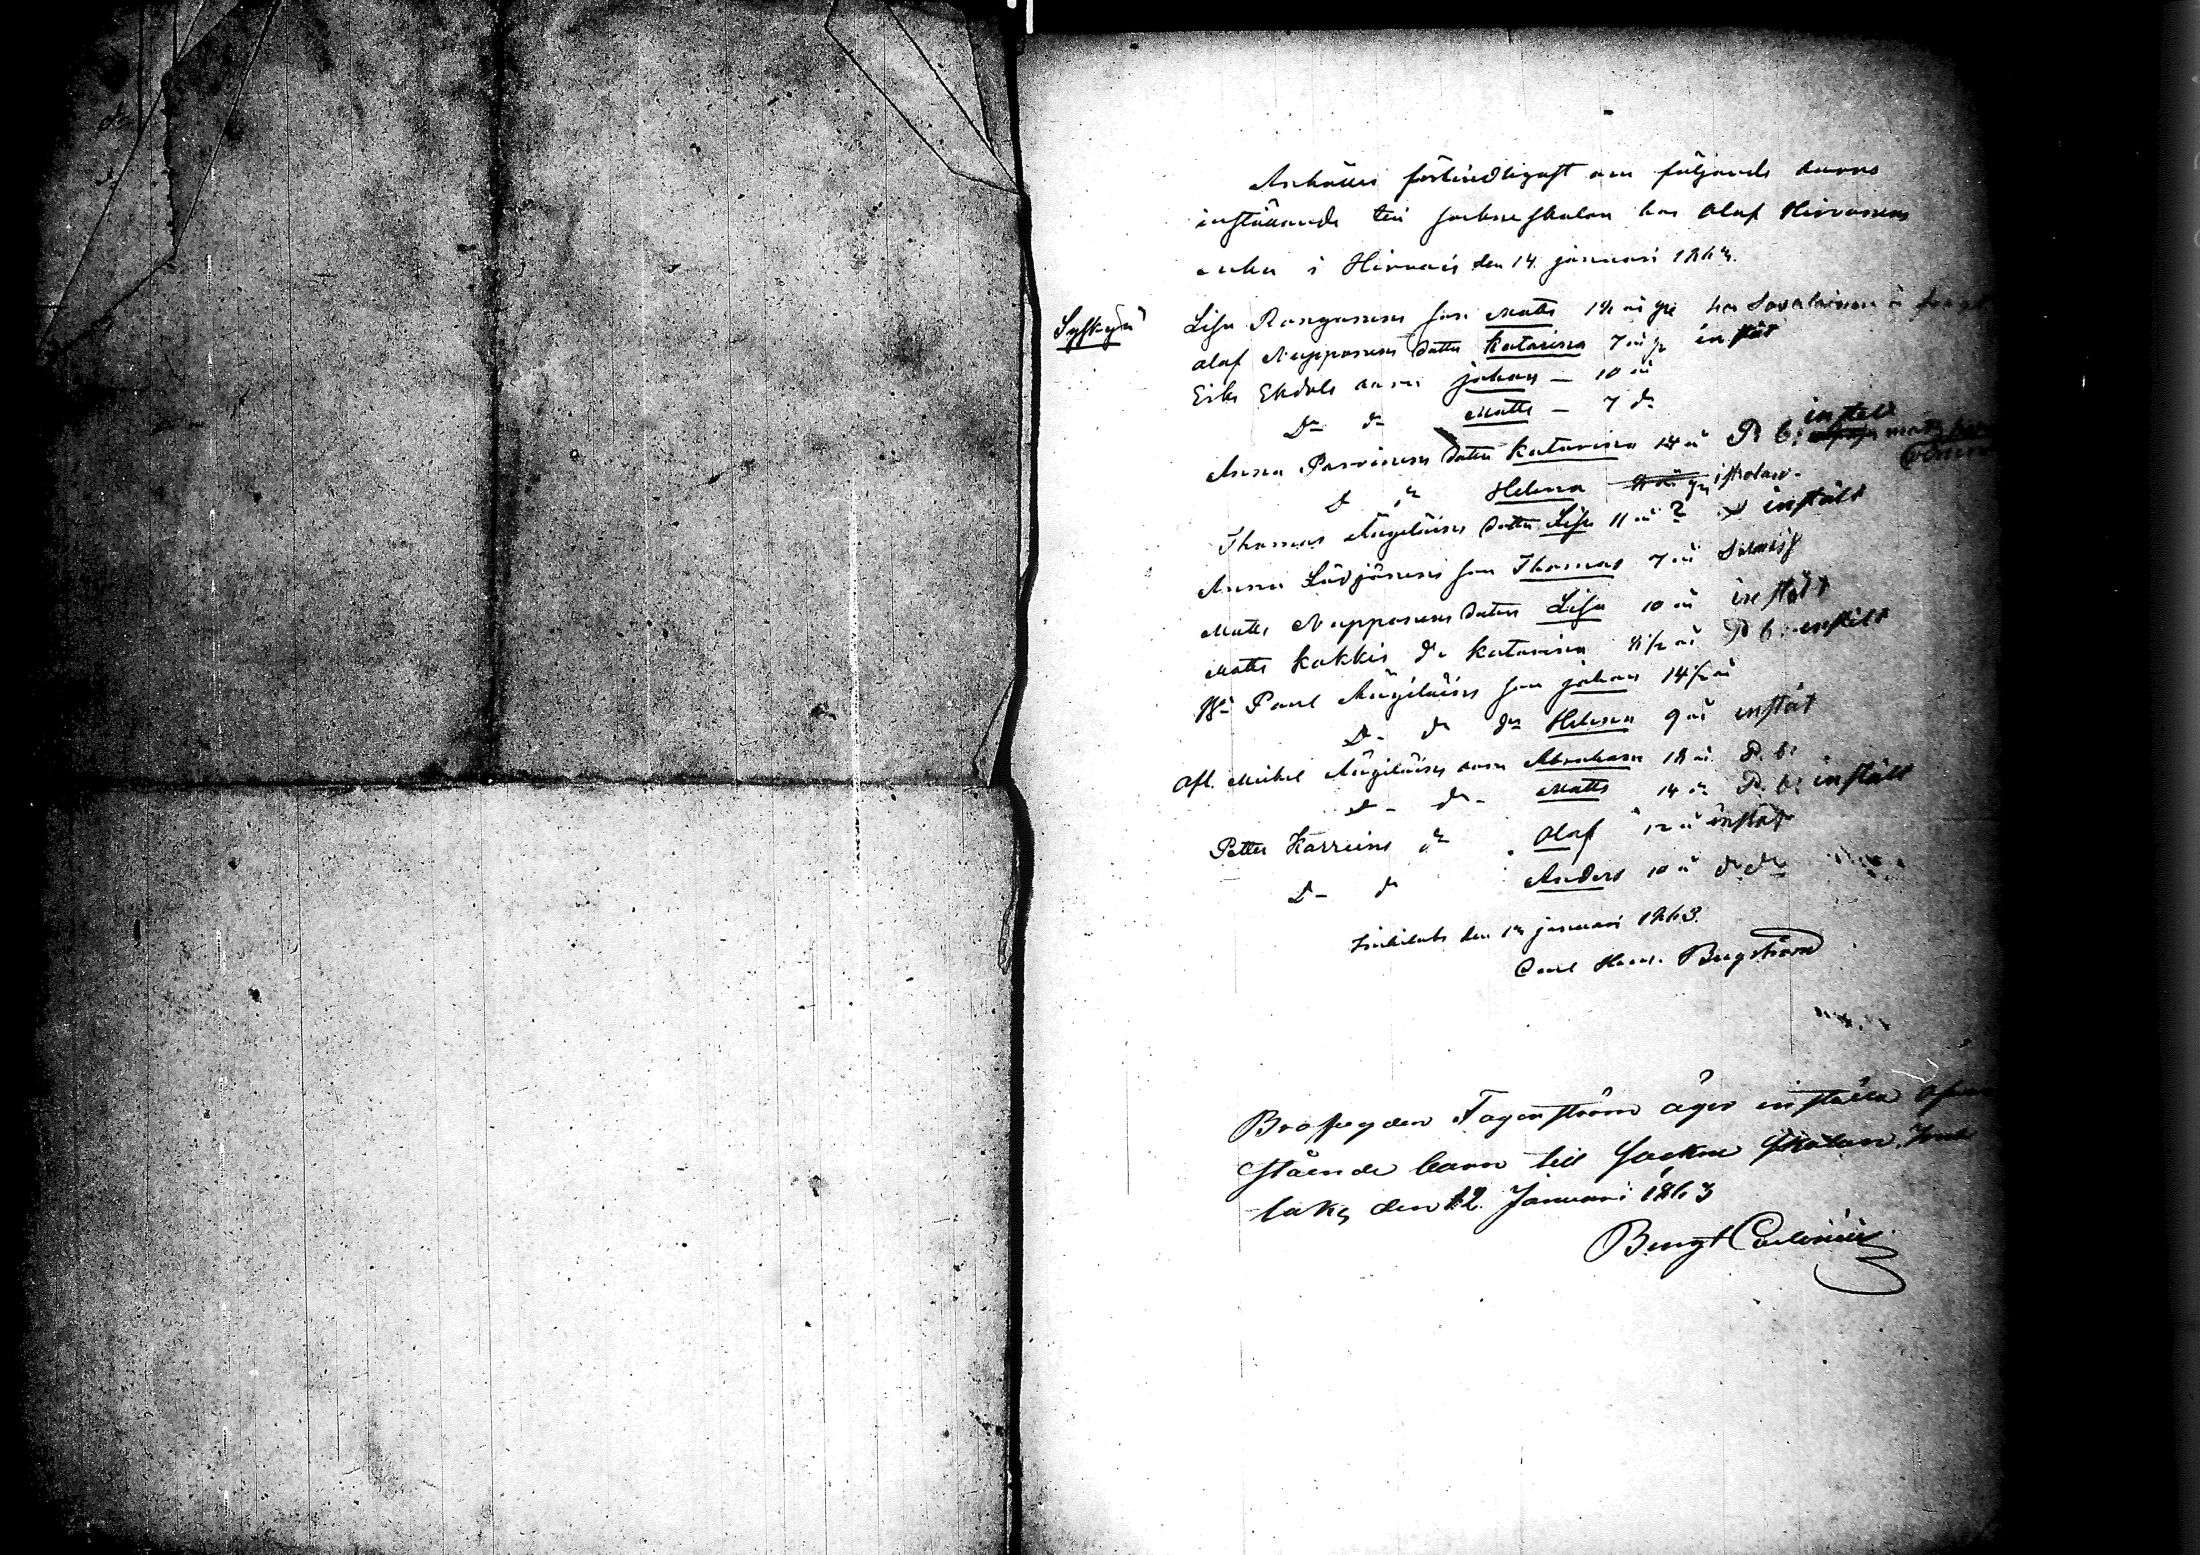 Anhålles förbindligast om följande barns
inställande till sockneskolan hos Olaf Hirvonens
enka i Hirvois den 14 januari 1863.
Syskyä
Lisa Rongonens son Matts 14 årge hos Savolainen i
Olaf Nupponens dotter Katarina 7 årg instält
Eriks Ekdals barn johan — 10 år
Do do Matts — 7 do
inställ
Anna Parvinens dotter Katarina 14 år P. b: matts
D do Helena i skolan.
Thomas Äugeläises dotter Lisa 11 år ? instält
Anna Lädjönens son Thomas 7 år
Matts Nupponens dotter Lisa 10 år instält
Matts Kokkis do Katarina 8 1/2 år P b: instält
Paul Äugiläises son johan 14 1/2 år
D- do do Helena 9 år instält
Afl. Mickel Äugiläises barn Abraham 18 år P. b:
D- do- Matts 14 år P. b: instält
Petter Harreins do Olaf 12 år instält
D- do Anders 10 år do do
den januari 1863.
Carl Bergström
Brofogden Fagerström äger inställa ofvan
stående barn till Sockne Skolan.
laks den 12. Januari 1863
Bengt Carlenius